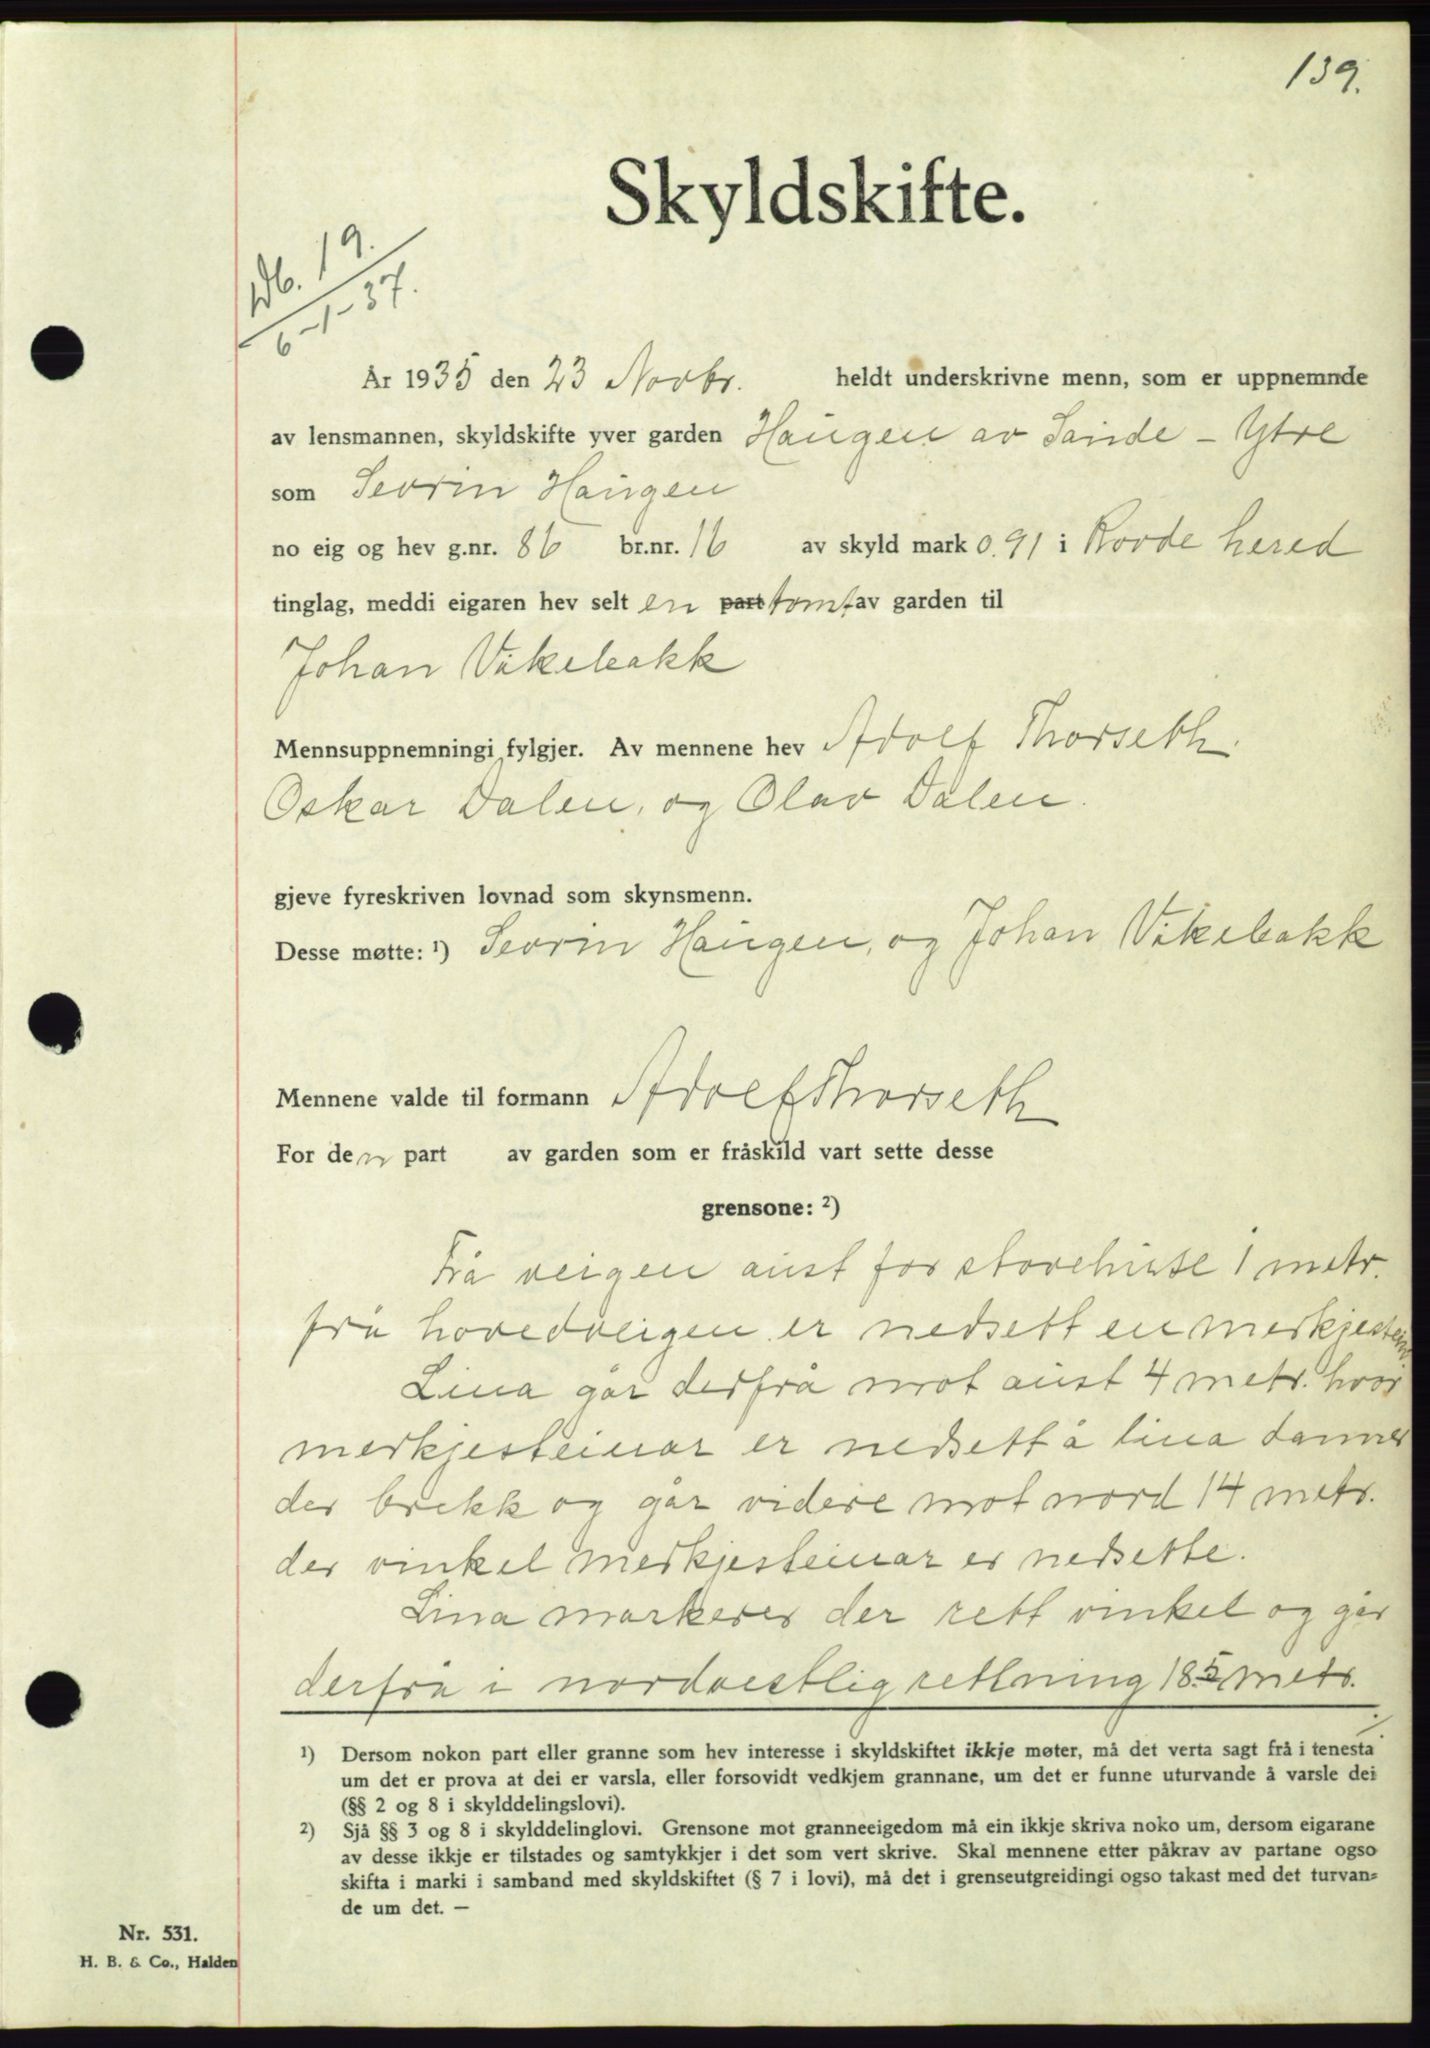 139.
Skyldskifte.
Db. 19.
6-1-37.
År 1935 den 23 Novbr. heldt underskrivne menn, som er uppnemnde
av lensmannen, skyldskifte yver garden Haugen av Sande - Ytre
som Sevrin Haugen
no eig og hev g.nr. 86 br.nr. 16 av skyld mark 0.91 i Rovde hered
tinglag, meddi eigaren hev selt en part tomt av garden til
Johan Vikebakk
Mennsuppnemningi fylgjer. Av mennene hev Adolf Thorseth.
Oskar Dalen, og Olav Dalen.
gjeve fyreskriven lovnad som skynsmenn.
Desse møtte: 1) Sevrin Haugen, og Johan Vikebakk
Mennene valde til formann Adolf Thorseth
For den part av garden som er fråskild vart sette desse
grensone: 2)
Frå veigen aust for stovehuse 1 metr.
frå hovedveigen er nedsett en merkjestein
Lina går derfrå mot aust 4 metr. hvor
merkjesteinar er nedsett å lina danner
der brekk og går videre mot nord 14 metr.
der vinkel merkjesteinar er nedsette.
Lina markerer der rett vinkel og går
derfrå i nordvestlig rettning 18.5 metr.
1) Dersom nokon part eller granne som hev interesse i skyldskiftet ikkje møter, må det verta sagt frå i tenesta
um det er prova at dei er varsla, eller forsovidt vedkjem grannane, um det er funne uturvande å varsle dei
(§§ 2 og 8 i skylddelingslovi).
2) Sjå §§ 3 og 8 i skylddelinglovi. Grensone mot granneeigedom må ein ikkje skriva noko um, dersom eigarane
av desse ikkje er tilstades og samtykkjer i det som vert skrive. Skal mennene etter påkrav av partane ogso
skifta i marki i samband med skyldskiftet (§ 7 i lovi), må det i grenseutgreidingi ogso takast med det turvan=
de um det. —
Nr. 531.
H. B. & Co., Halden